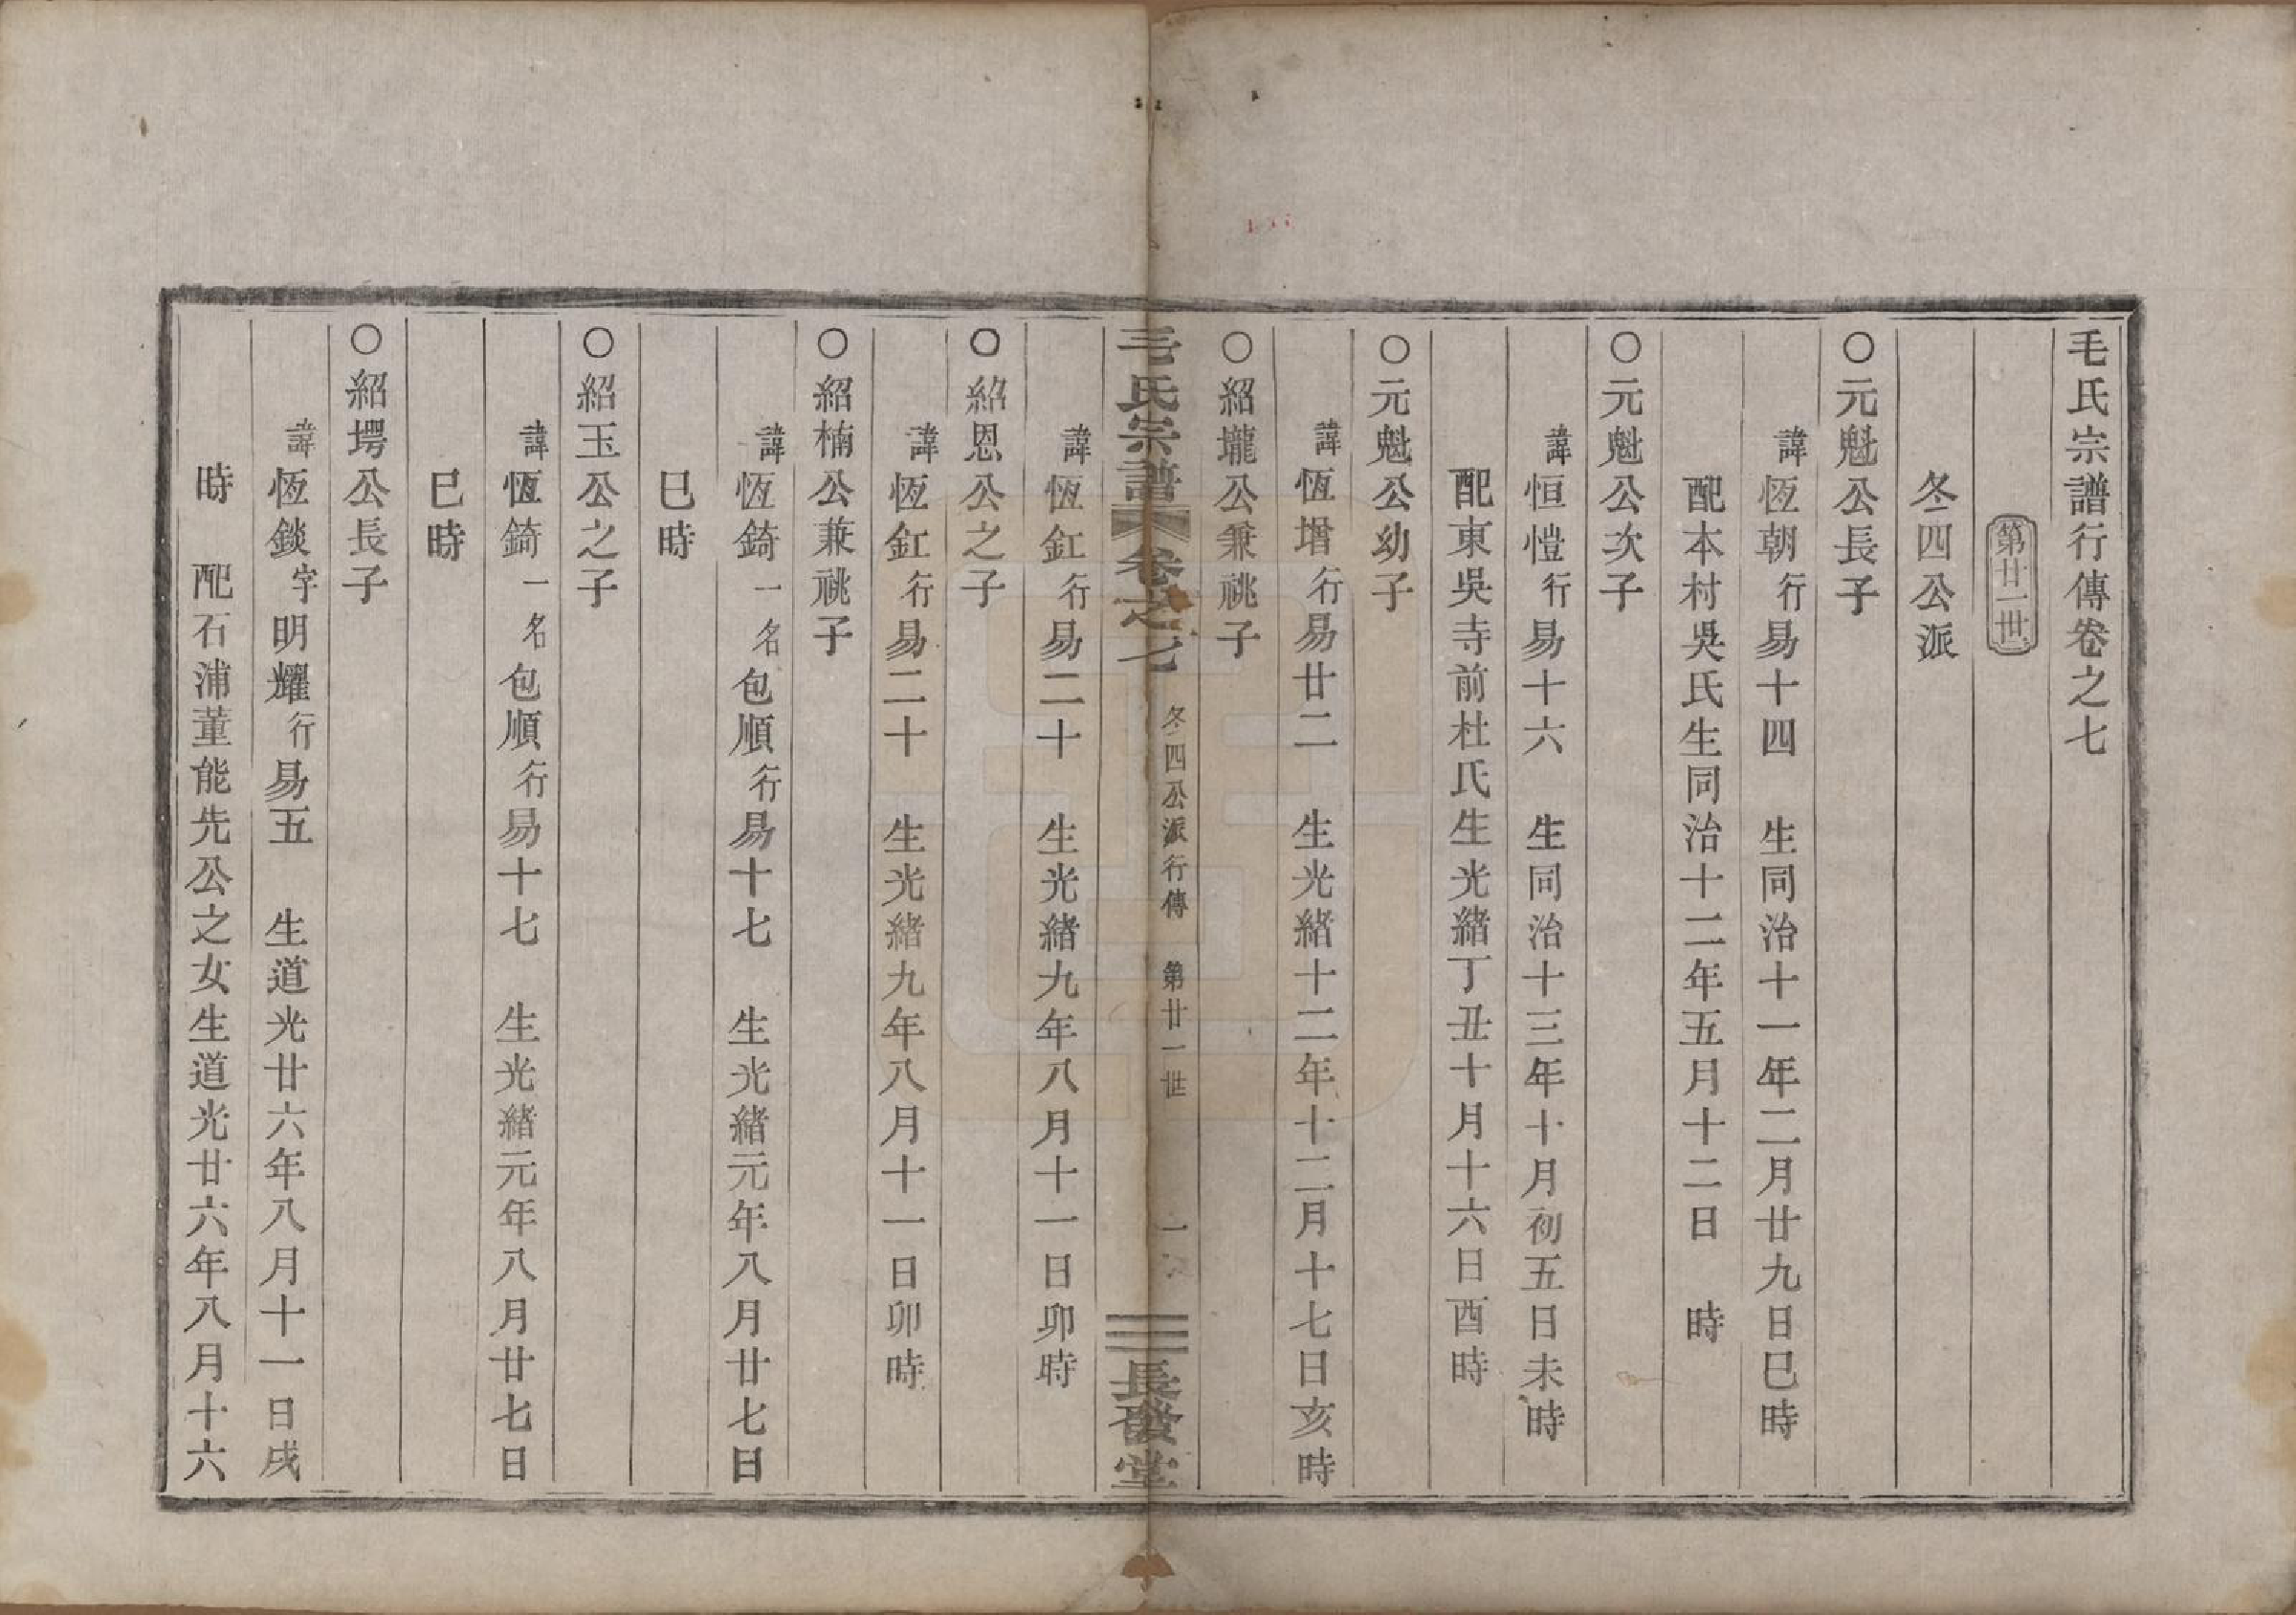 毛氏宗譜行傳卷之七
第廿一世
冬四公派
○元魁公長子
諱恆朝行易十四　生同治十一年二月廿九日巳時
配本村吳氏生同治十二年五月十二日　時
○元魁公次子
諱恒愷行易十六　生同治十三年十月初五日未時
配東吳寺前杜氏生光緒丁丑十月十六日酉時
○元魁公幼子
諱恆增行易廿二　生光緒十二年十二月十七日亥時
○紹壠公兼祧子
毛氏宗譜　卷之七　冬四公派行傳　第廿一世　一　長發堂
諱恆釭行易二十　生光緒九年八月十一日卯時
○紹恩公之子
諱恆釭行易二十　生光緒九年八月十一日卯時
○紹楠公兼祧子
諱恆錡一名包順行易十七　生光緒元年八月廿七日
巳時
○紹玉公之子
諱恆錡一名包順行易十七　生光緒元年八月廿七日
巳時
○紹堮公長子
諱恆錟字明耀行易五　生道光廿六年八月十一日戌
時　配石浦董能先公之女生道光廿六年八月十六